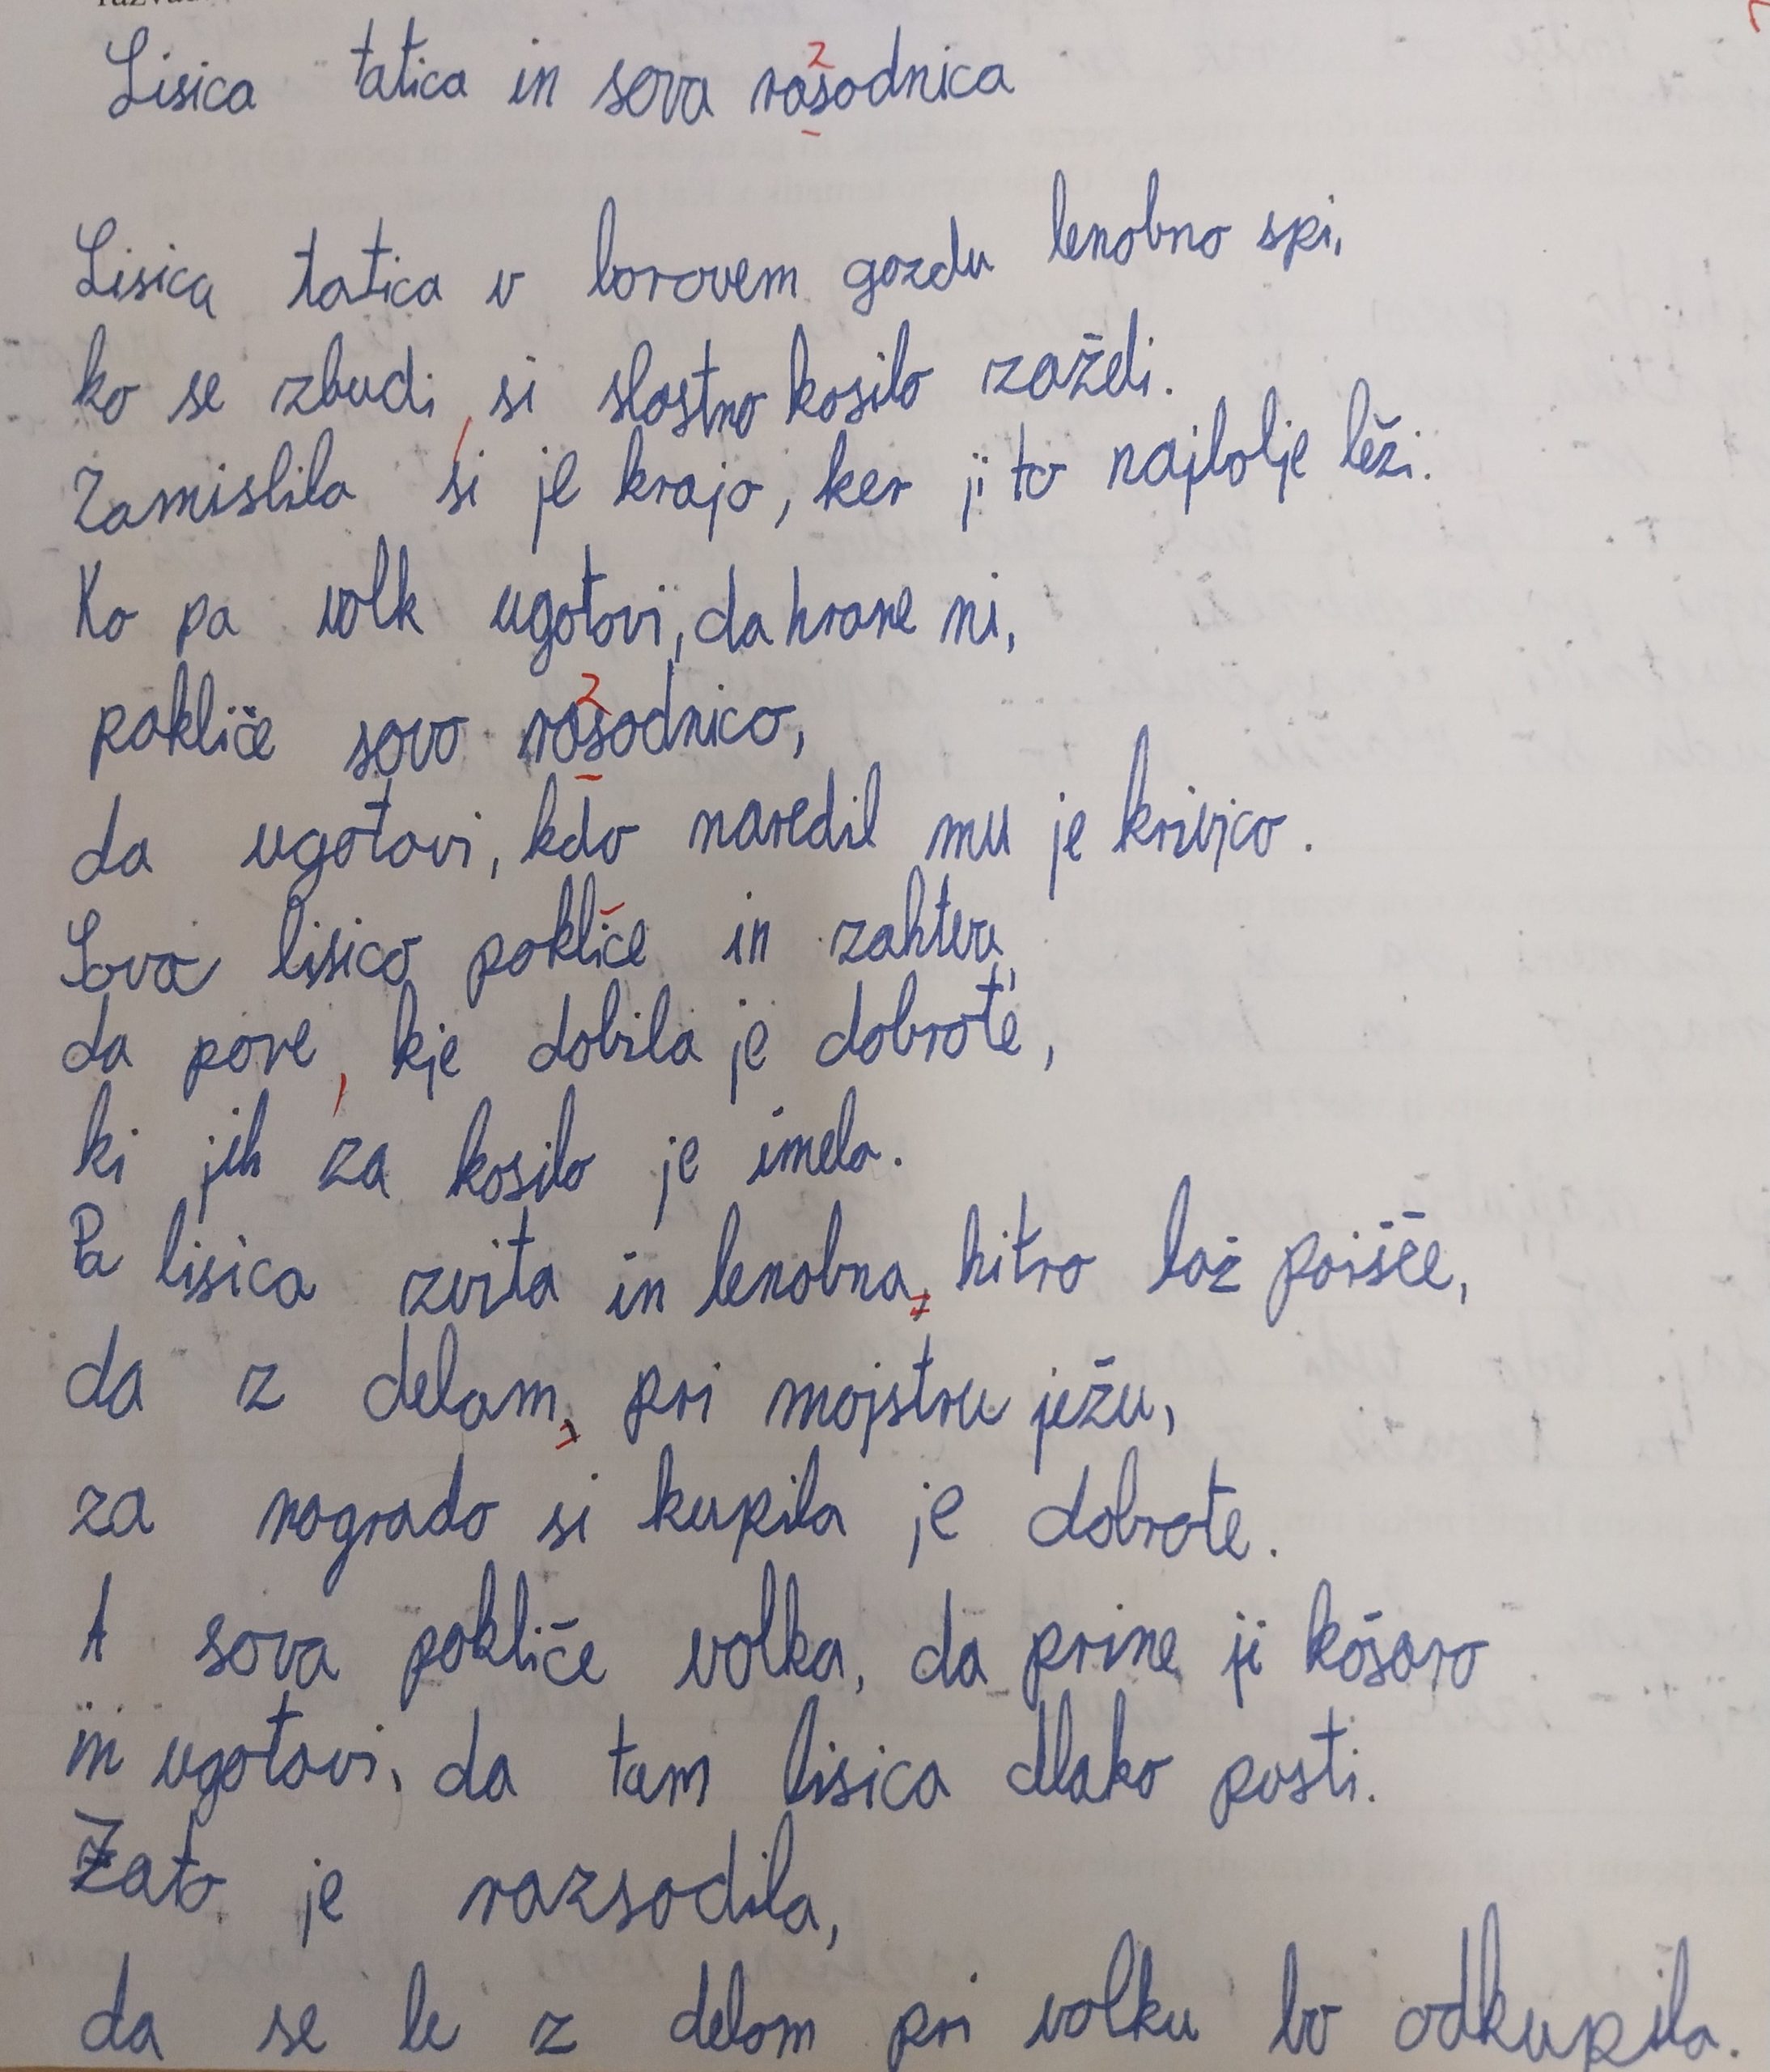 Lisica tatica in sova rasodnica
Lisica tatica v borovem gozdu lenobno spi,
ko se zbudi, si slastno kosilo zaždi.
Zamislila si je krajo, ker ji to najbolje leži.
Ko pa volk ugotovi, da hrane ni,
pokliče sovo rasodnico,
da ugotovi, kdo naredil mu je krivico.
Sova lisico pokliče in zahteva,
da pove, kje dobila je dobrote,
ki jih za kosilo je imela.
Pa lisica zvita in lenobna, hitro laž poišče,
da z delom, pri mojstru ježu,
za nagrado si kupila je dobrote.
A sova pokliče volka, da prine ji košaro
in ugotovi, da tam lisica dlako pusti.
Zato je razsodila,
da se le z delom pri volku bo odkupila.